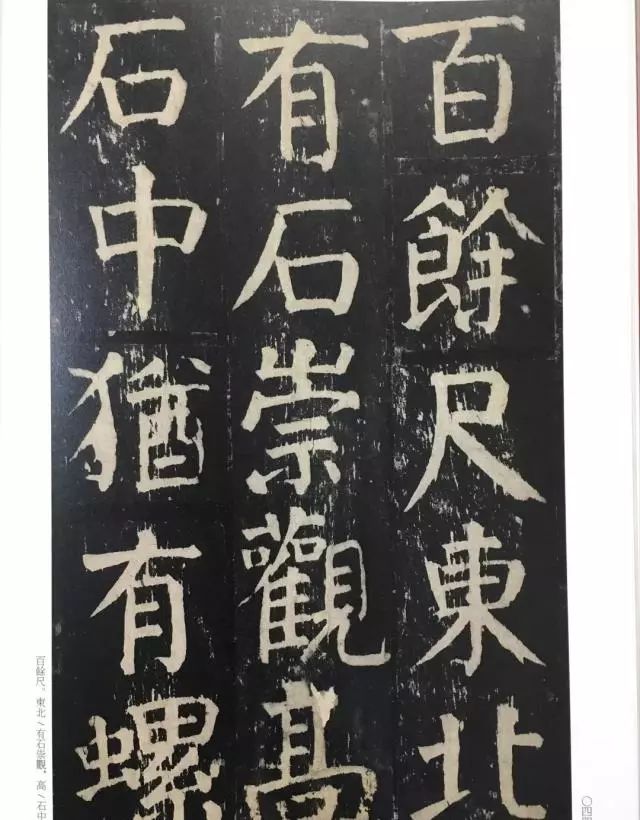 百餘尺東北
有石崇觀高
石中猶有螺
百餘尺。東北/有石崇觀。高/石中
〇四